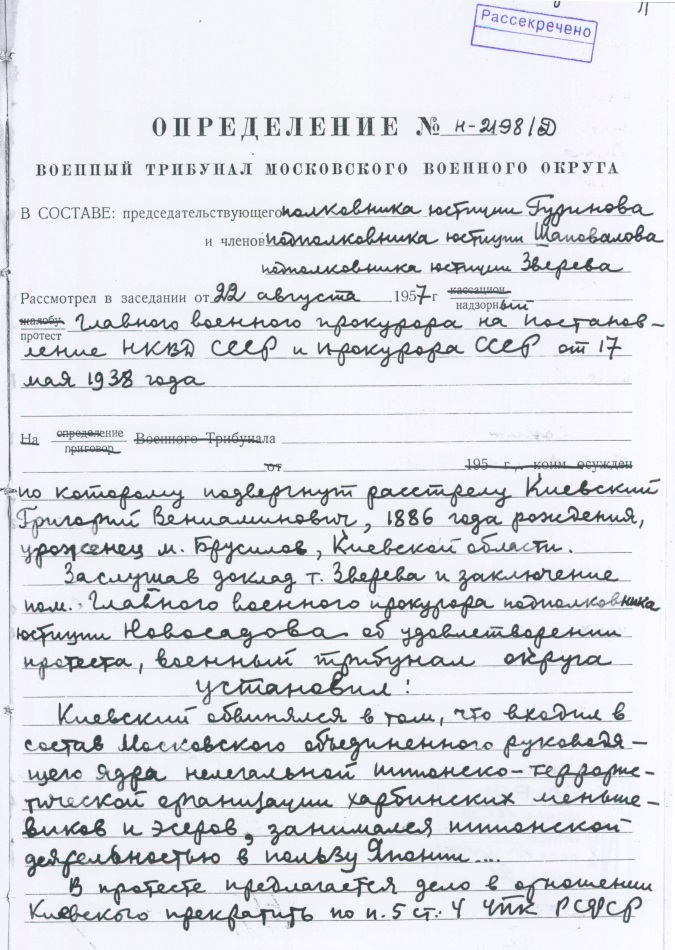 Рассекречено
ОПРЕДЕЛЕНИЕ № н-2198/Д
ВОЕННЫЙ ТРИБУНАЛ МОСКОВСКОГО ВОЕННОГО ОКРУГА
В СОСТАВЕ: председательствующего полковника юстиции Гуринова
и членов подполковника юстиции Шаповалова
подполковника юстиции Зверева
Рассмотрел в заседании от 22 августа 1957 г кассацион.
надзорный
жалобу Главного военного прокурора на постанов-
протест
ление НКВД СССР и Прокурора СССР от 17
мая 1938 года
На определение Военного Трибунала
приговор
от 195 г., коим осужден
по которому подвергнут расстрелу Киевский
Григорий Вениаминович, 1886 года рождения,
урожденец м. Брусилов, Киевской области.
Заслушав доклад т. Зверева и заключение
пом. Главного военного прокурора подполковника
юстиции Новосадова об удовлетворении
протеста, военный трибунал округа
установил:
Киевский обвинялся в том, что входил в
состав Московского объединенного руководя-
щего ядра нелегальной шпионско-террорис-
тической организации харбинских меньше-
виков и эсеров, занимался шпионской
деятельностью в пользу Японии....
В протесте предлагается дело в отношении
Киевского прекратить по п. 5 ст. 4 УПК РСФСР